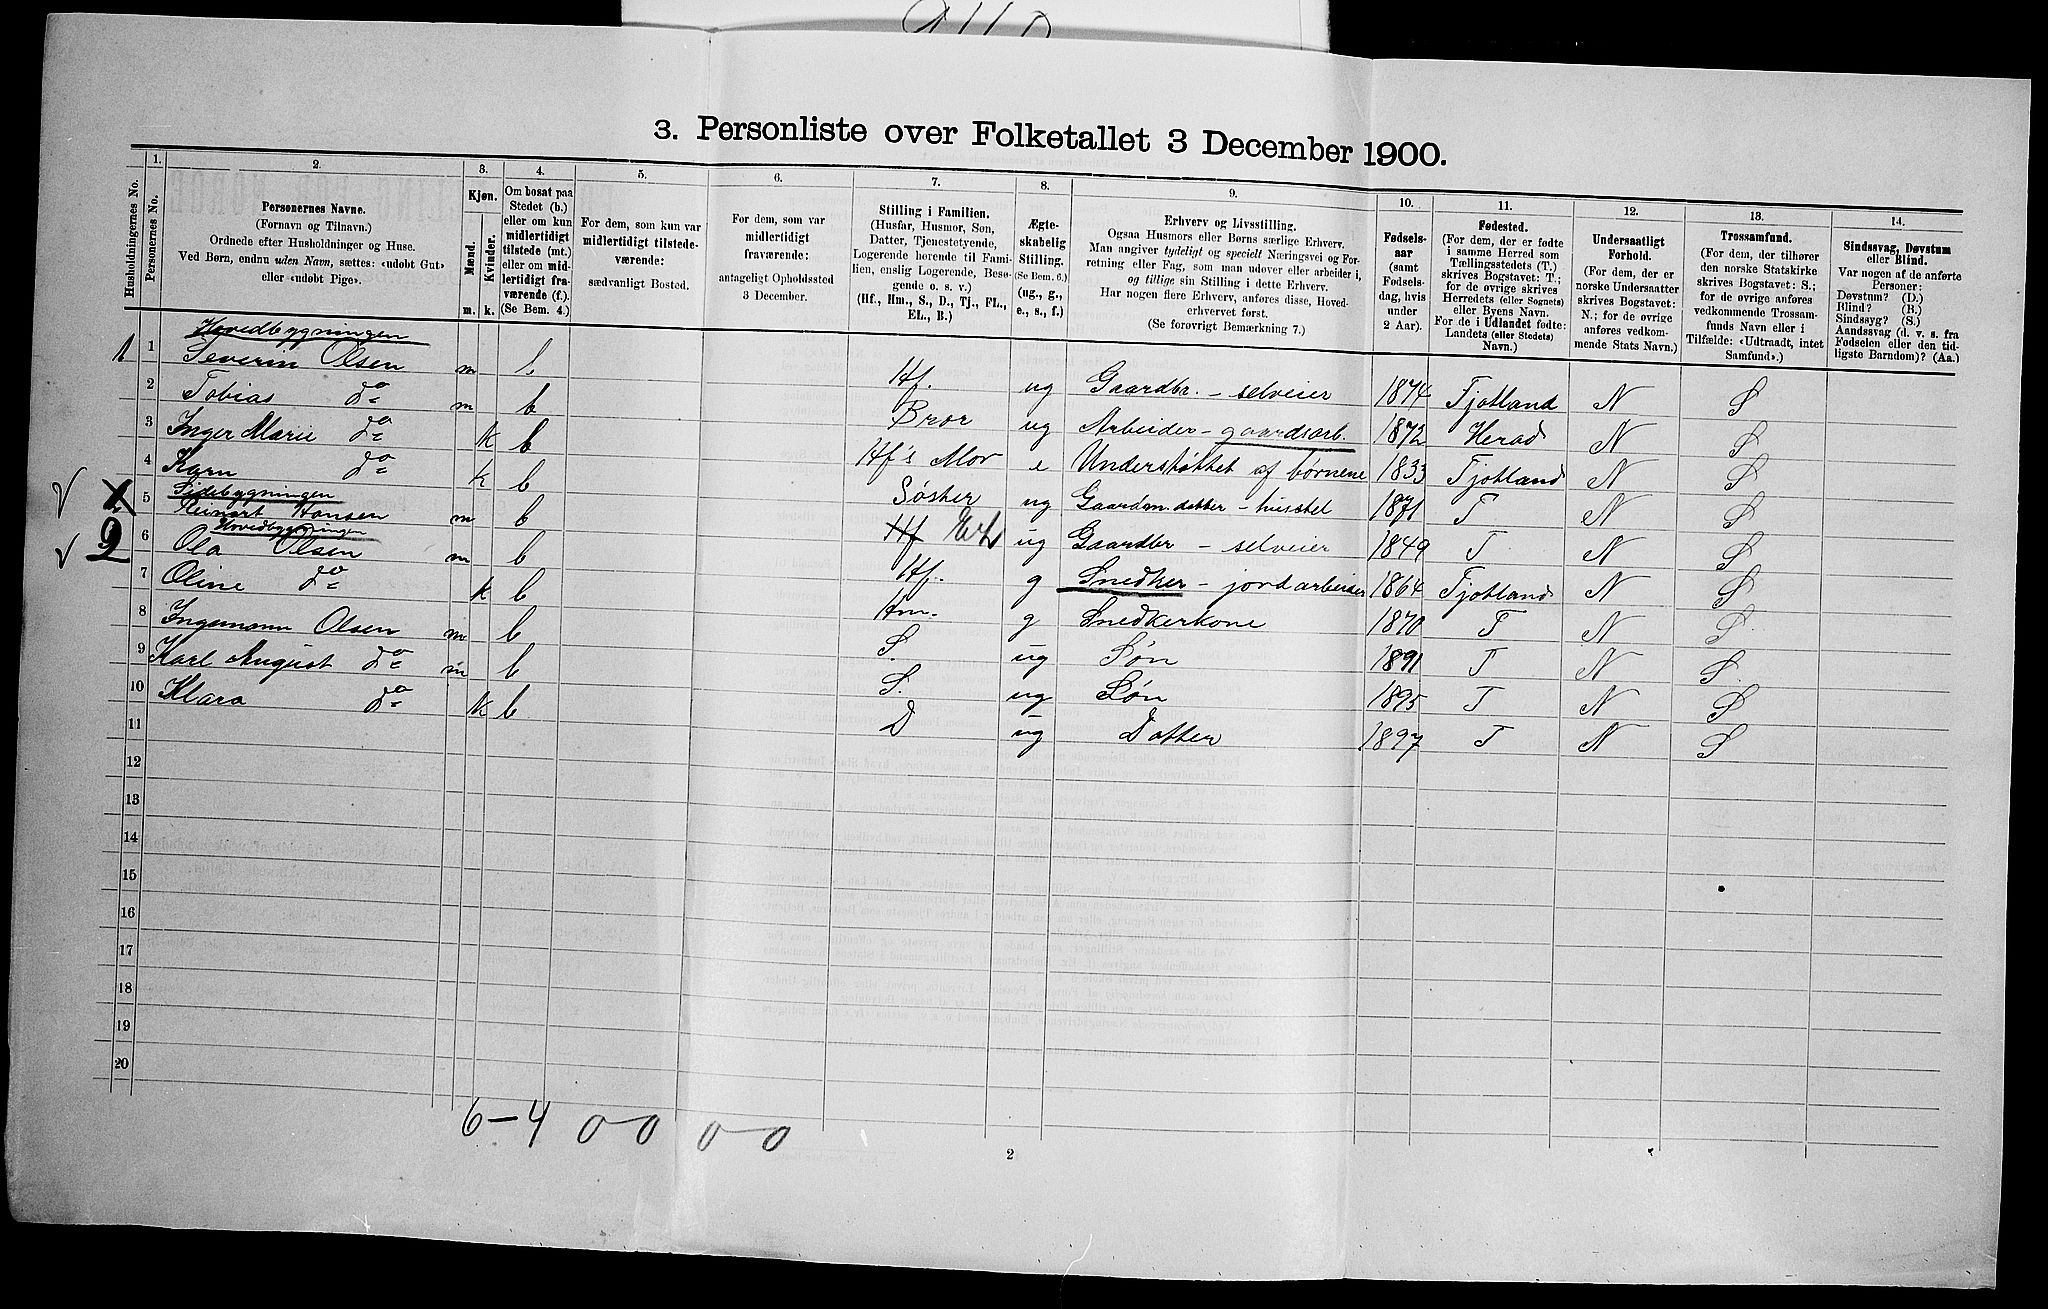 3. Personliste over Folketallet 3 December 1900.
Husholdningernes No.
1. Personernes No.
2. Personernes Navne. (Fornavn og Tilnavn.) Ordnede efter Husholdninger og Huse. Ved Børn, endnu uden Navn, sættes: «udøbt Gut» eller «udøbt Pige».
3. Kjøn. Mænd. Kvinder. m. k.
4. Om bosat paa Stedet (b.) eller om kun midlertidigt tilstede (mt.) eller om midlertidigt fraværende (f.). (Se Bem. 4.)
5. For dem, som kun var midlertidigt tilstedeværende: sædvanligt Bosted.
6. For dem, som var midlertidigt fraværende: antageligt Opholdssted 3 December.
7. Stilling i Familien. (Husfar, Husmor, Søn, Datter, Tjenestetyende, Logerende hørende til Familien, enslig Logerende, Besøgende o. s. v.) (Hf., Hm., S., D., Tj., FL., EL., B.)
8. Ægteskabelig Stilling. (Se Bem. 6.) (ug., g., e., s., f.)
9. Erhverv og Livsstilling. Ogsaa Husmors eller Børns særlige Erhverv. Man angiver tydeligt og specielt Næringsvei og Forretning eller Fag, som man udøver eller arbeider i, og tillige sin Stilling i dette Erhverv. Har nogen flere Erhverv, anføres disse, Hovederhvervet først. (Se forøvrigt Bemærkning 7.)
10. Fødselsaar (samt Fødselsdag, hvis under 2 Aar).
11. Fødested. (For dem, der er fødte i samme Herred som Tællingsstedets (T.) skrives Bogstavet: T.; for de øvrige skrives Herredets (eller Sognets) eller Byens Navn. For de i Udlandet fødte: Landets (eller Stedets) Navn.)
12. Undersaatligt Forhold. (For dem, der er norske Undersaatter skrives Bogstavet: N.; for de øvrige anføres vedkommende Stats Navn.)
13. Trossamfund. (For dem, der tilhører den norske Statskirke skrives Bogstavet: S.; for de øvrige anføres vedkommende Trossamfunds Navn eller i Tilfælde: «Udtraadt, intet Samfund».)
14. Sindssvag, Døvstum eller Blind. Var nogen af de anførte Personer: Døvstum? (D.) Blind? (B.) Sindssyg? (S.) Aandssvag (d. v. s. fra Fødselen eller den tidligste Barndom)? (Aa.)
Hovedbygningen
1 1 Severin Olsen m b Hf. ug Gaardbr. – selveier 1874 Fjotland N S
2 Tobias do m b Bror ug Arbeider – gaardsarb. 1872 Herad N S
3 Inger Marie do k b Hf's Mor e Understøttet af børnene 1833 Fjotland N S
4 Karn do k b Søster ug Gaardm. datter – husstel 1871 T N S
Sidebygningen
5 Reinart Hansen m b Hf EL ug Gaardbr – selveier 1849 T N S
Hovedbygningen
2 6 Ola Olsen m b Hf. g Snedker – jordarbeider 1864 Fjotland N S
7 Oline do k b Hm. g Snedkerkone 1870 T N S
8 Ingemann Olsen m b S. ug Søn 1891 T N S
9 Karl August do m b S. ug Søn 1895 T N S
10 Klara do k b D ug Datter 1897 T N S
11
12
13
14
15
16
17
18
19
20
6–4 0 0 0 0
2